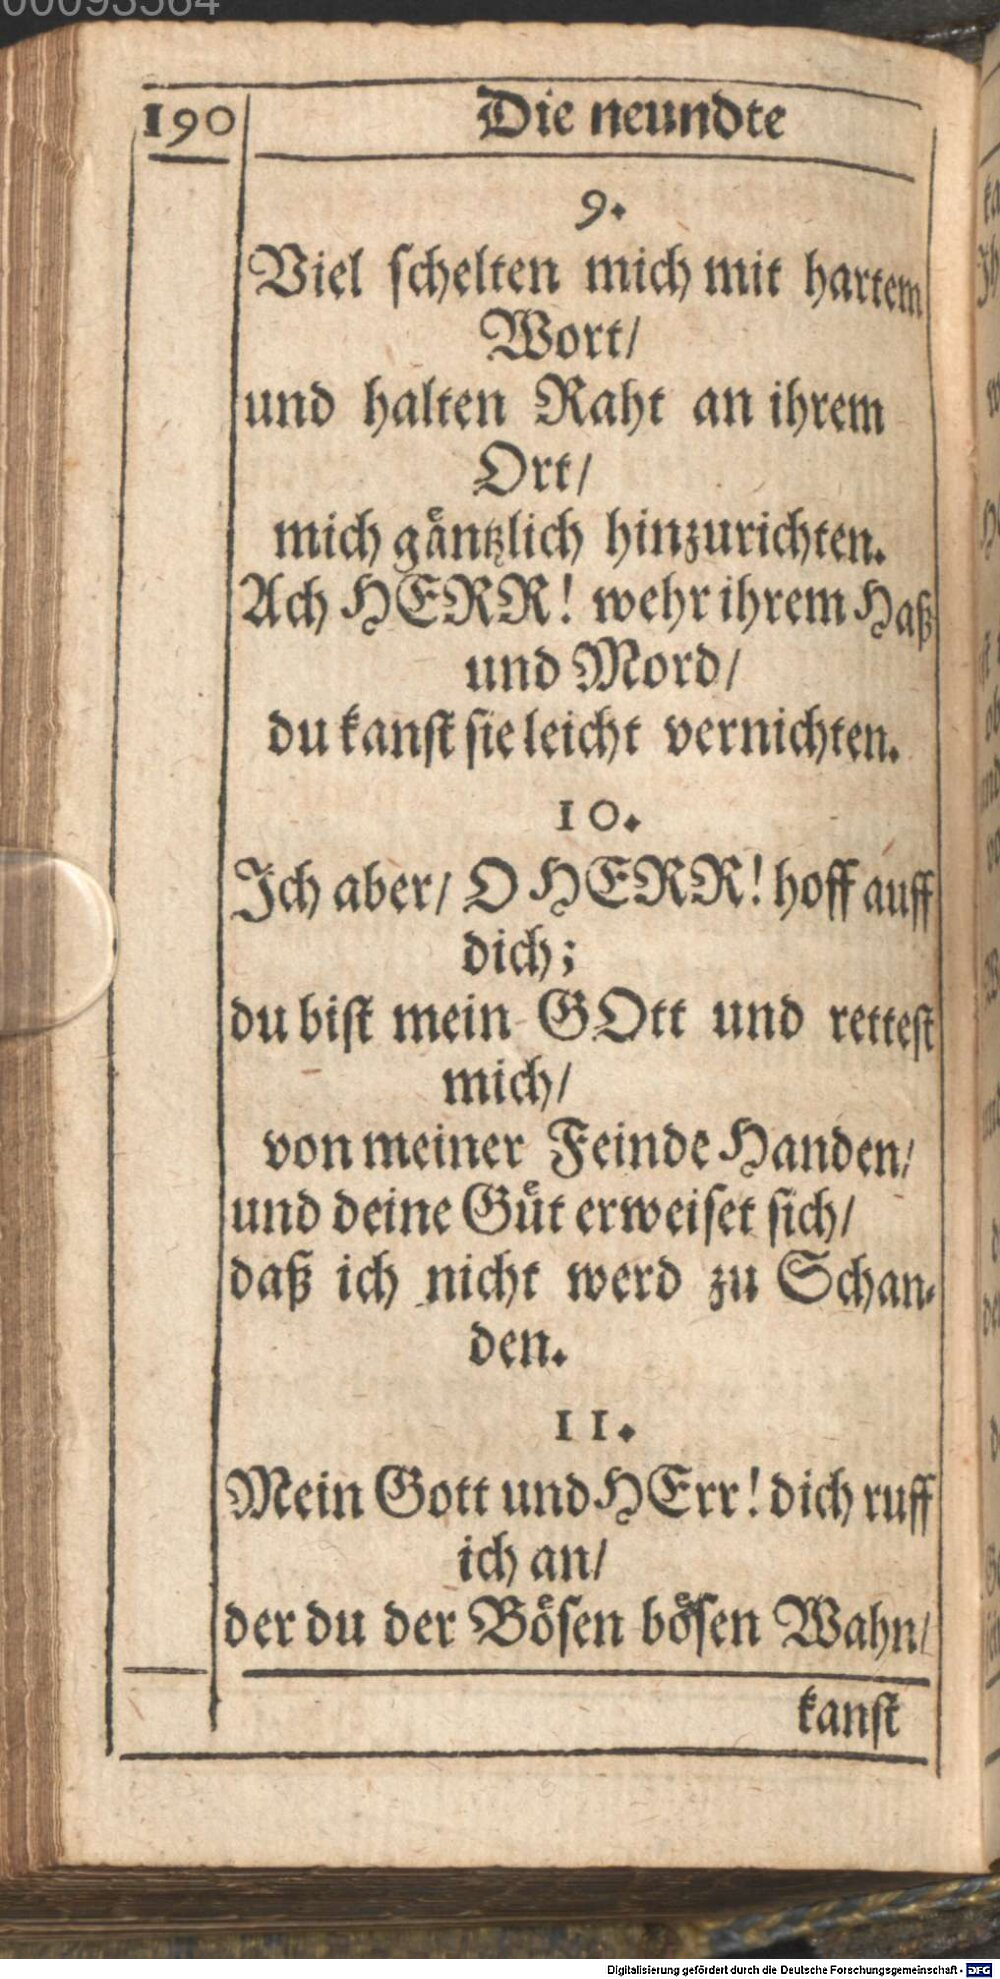 00093564
190
Die neundte
9.
Viel ſchelten mich mit hartem
Wort/
und halten Raht an ihrem
Ort/
mich gaͤntzlich hinzurichten.
Ach HERR! wehr ihrem Haß
und Mord/
du kanſt ſie leicht vernichten.
10.
Ich aber/ O HERR! hoff auff
dich;
du biſt mein GOtt und retteſt
mich/
von meiner Feinde Handen/
und deine Guͤt erweiſet ſich/
daß ich nicht werd zu Schan-
den.
11.
Mein Gott und HErr! dich ruff
ich an/
der du der Boͤſen boͤſen Wahn/
kanſt
Digitalisierung gefördert durch die Deutsche Forschungsgemeinschaft - DFG